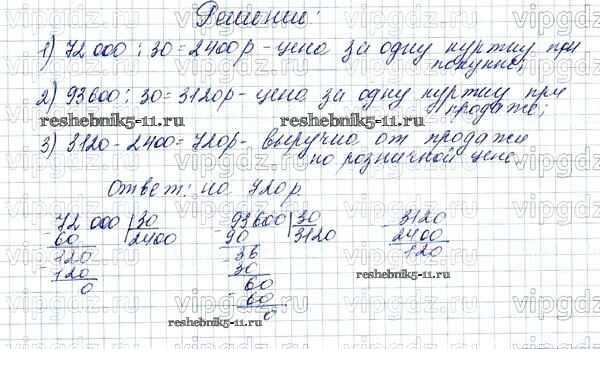 Решение:
1) 72 000 : 30 = 2400 р - цена за одну куртку при
покупке;
2) 93600 : 30 = 3120 р - цена за одну куртку при
reshebnik5-11.ru
продаже;
3) 3120 - 2400 = 720 р - выручка от продажи
reshebnik5-11.ru
по розничной цене
Ответ: на 720 р.
72 000 | 30
- 60 2400
120
- 120
0
93600 | 30
- 90 3120
36
- 30
60
- 60
0
- 3120
2400
120
reshebnik5-11.ru
reshebnik5-11.ru
vipgdz.ru